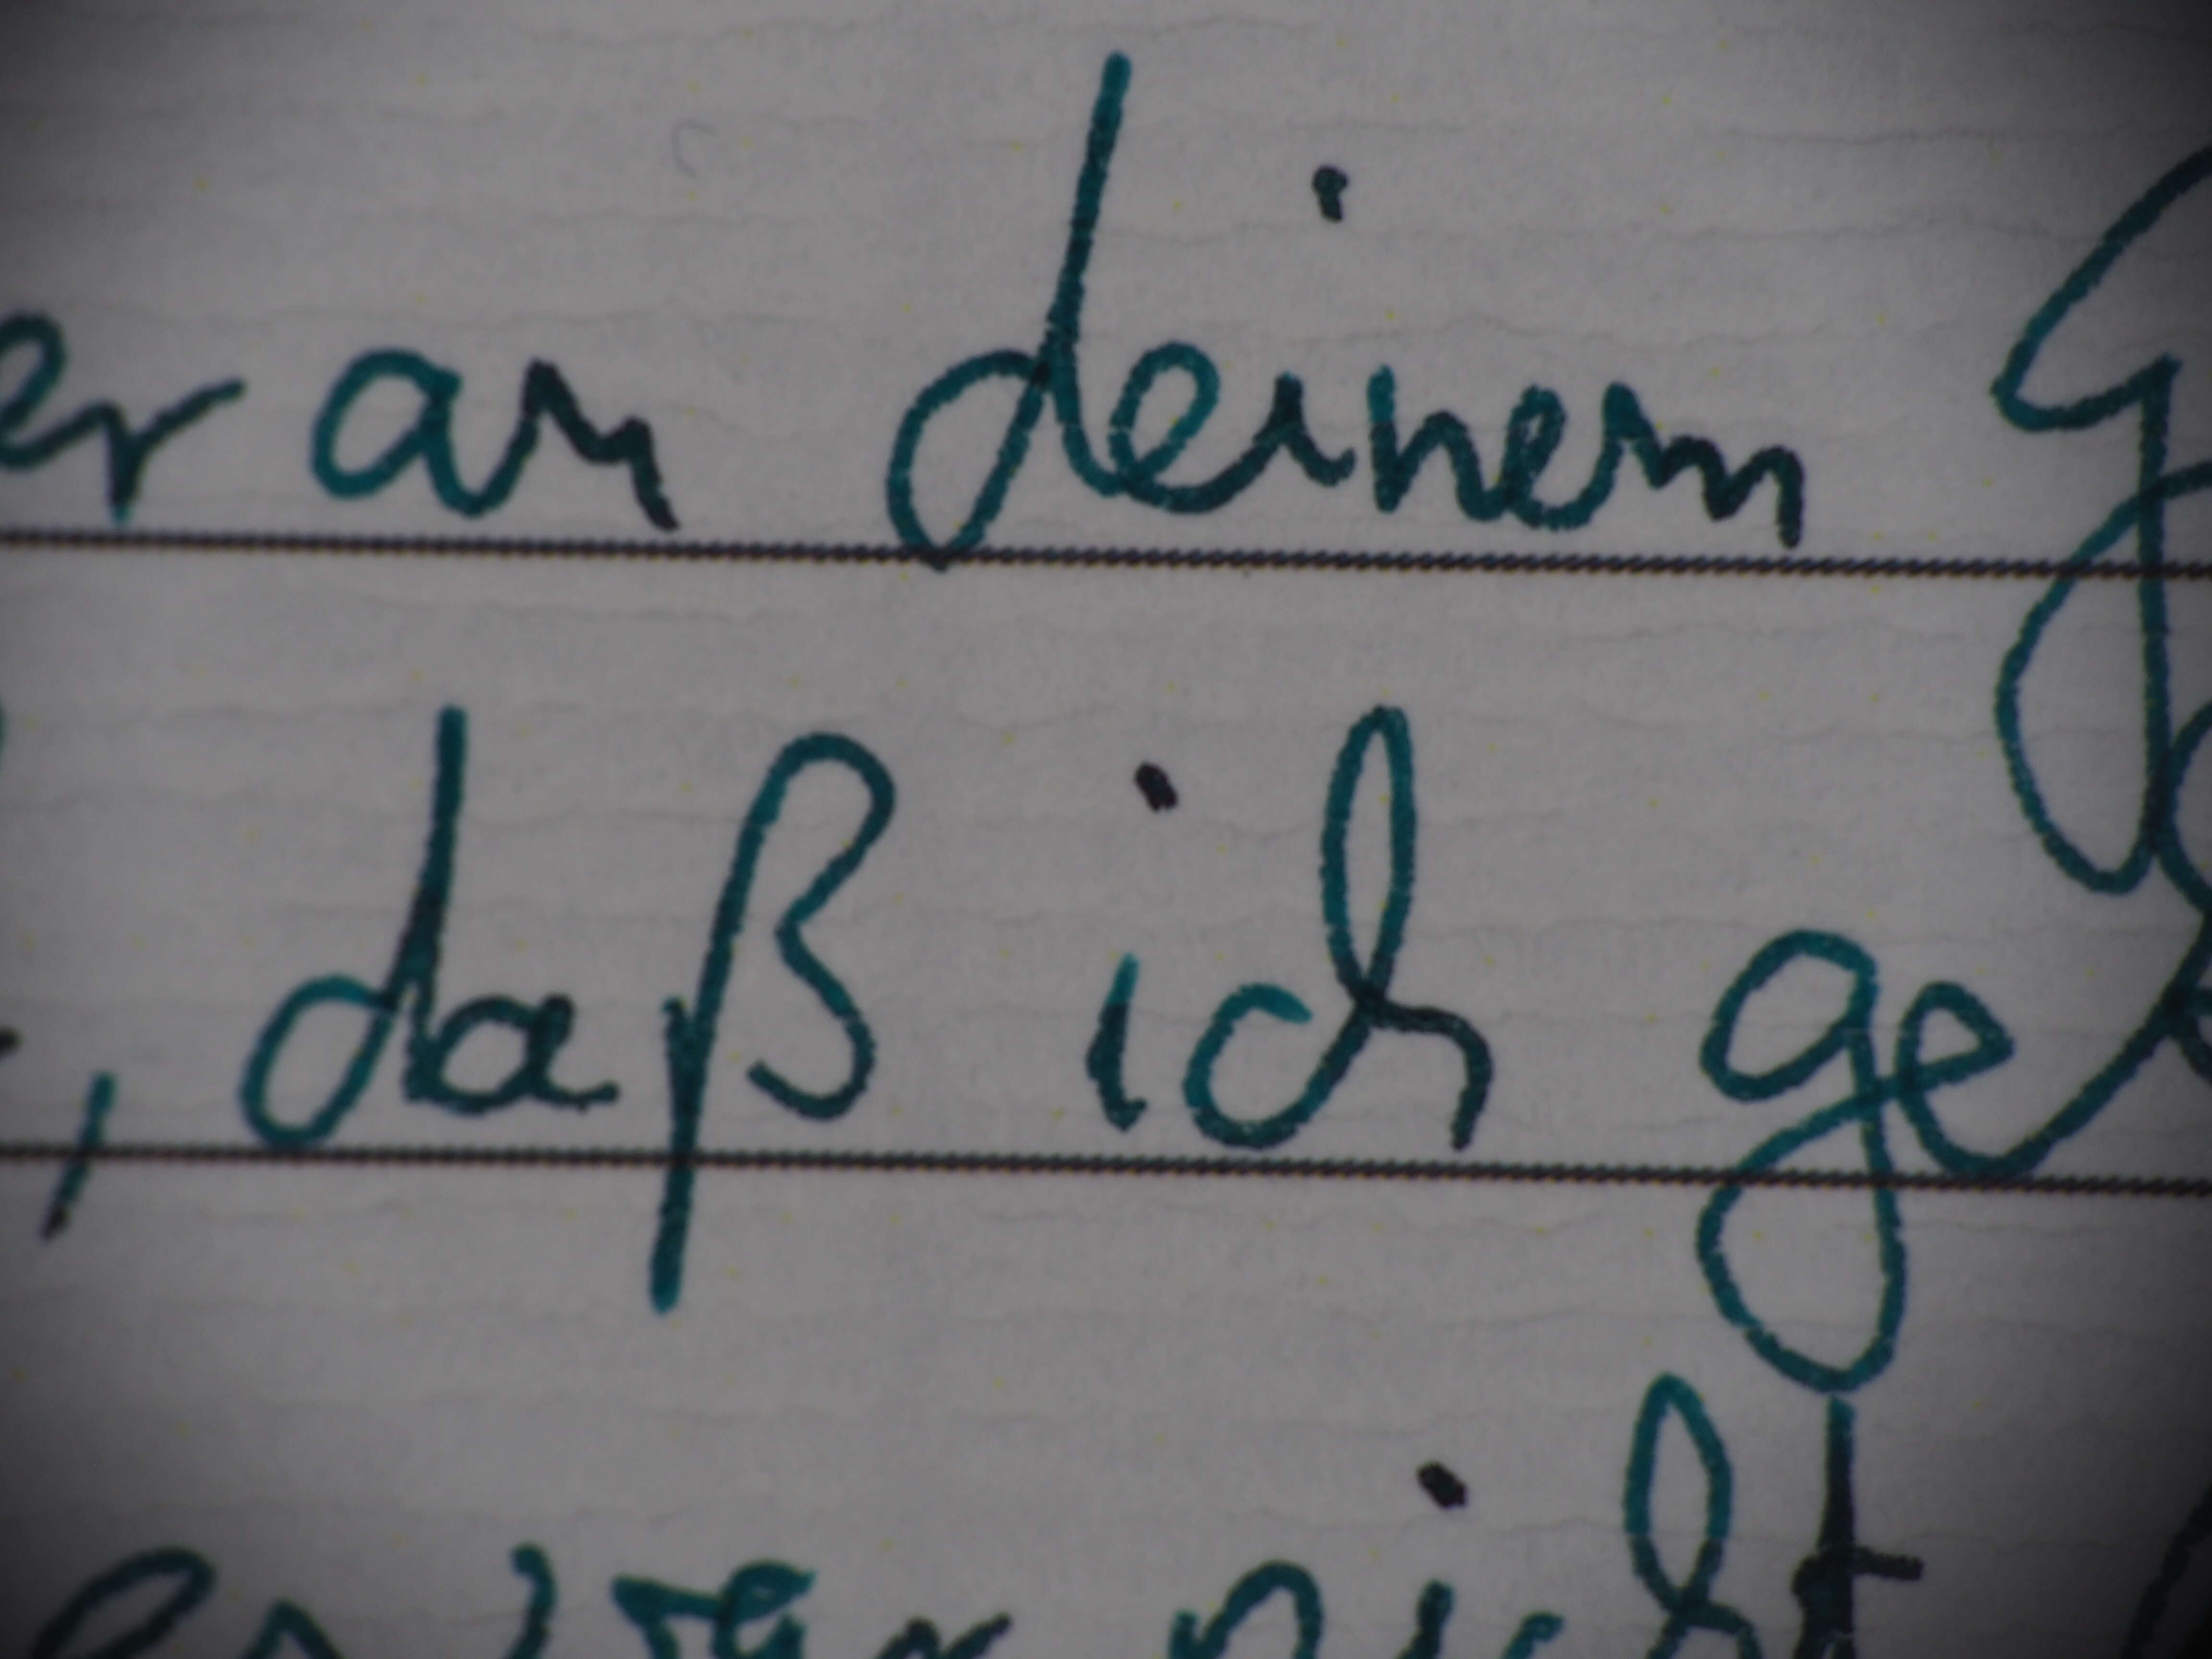 er an deinem G
, daß ich ge
er war nicht